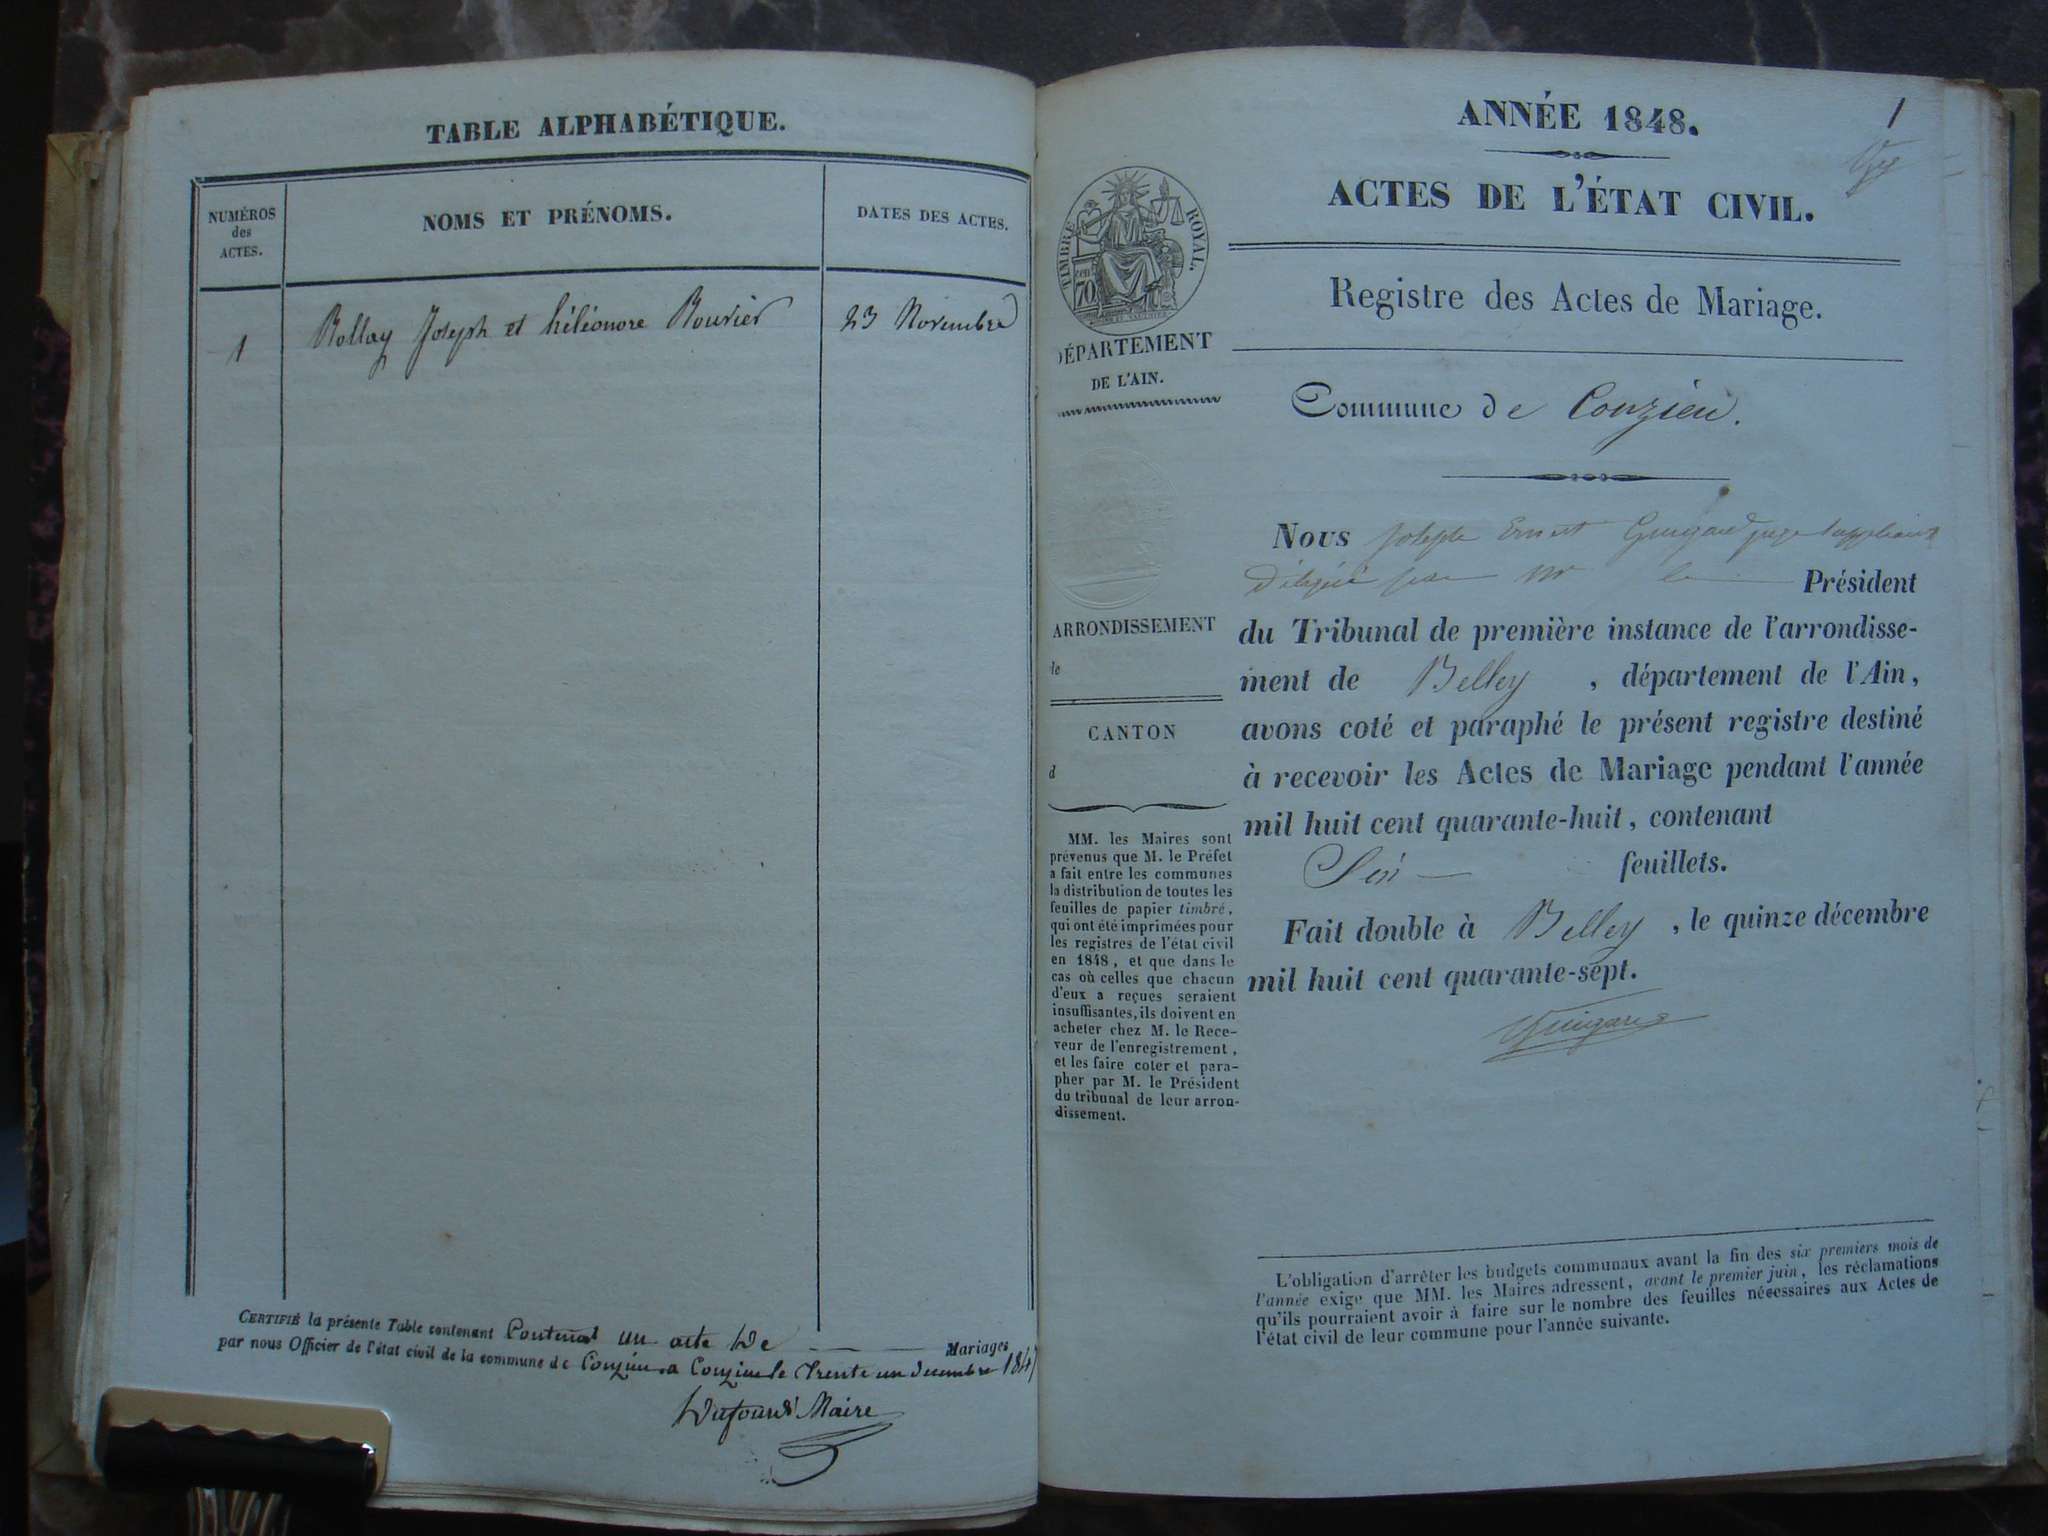 TABLE ALPHABÉTIQUE.
NUMÉROS
des
ACTES.
NOMS ET PRÉNOMS.
DATES DES ACTES.
1
Rollay Joseph et héléonore Bouvier
23 Novembre
CERTIFIÉ la présente Table contenant Contenant un acte de Mariages
par nous Officier de l'état civil de la commune de Conzieu. a Conzieu le trente un decembre 1847
Dufour Maire
ANNÉE 1848.
1
ACTES DE L'ÉTAT CIVIL.
TIMBRE ROYAL.
cen
70
Registre des Actes de Mariage.
DÉPARTEMENT
DE L'AIN.
Commune de Conzieu.
Nous Joseph Ernest Guigard juge suppléant
délégué par Mr le Président
du Tribunal de première instance de l'arrondisse-
ment de Belley, département de l'Ain,
avons coté et paraphé le présent registre destiné
à recevoir les Actes de Mariage pendant l'année
mil huit cent quarante-huit, contenant
feuillets.
Fait double à Belley, le quinze décembre
mil huit cent quarante-sept.
Guigard
ARRONDISSEMENT
de
CANTON
d
MM. les Maires sont
prévenus que M. le Préfet
a fait entre les communes
la distribution de toutes les
feuilles de papier timbré,
qui ont été imprimées pour
les registres de l'état civil
en 1848, et que dans le
cas où celles que chacun
d'eux a reçues seraient
insuffisantes, ils doivent en
acheter chez M. le Rece-
veur de l'enregistrement,
et les faire coter et para-
pher par M. le Président
du tribunal de leur arron-
dissement.
L'obligation d'arrêter les budgets communaux avant la fin des six premiers mois de
l'année exige que MM. les Maires adressent, avant le premier juin, les réclamations
qu'ils pourraient avoir à faire sur le nombre des feuilles nécessaires aux Actes de
l'état civil de leur commune pour l'année suivante.